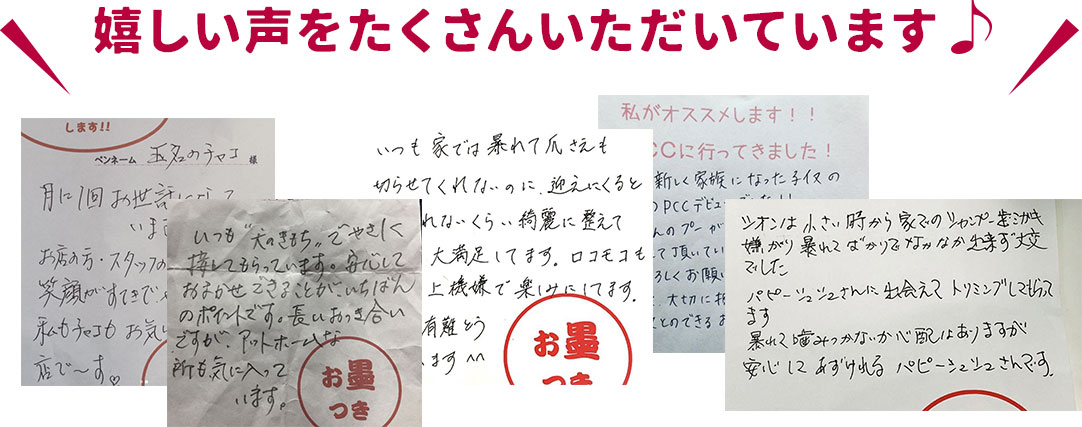 嬉しい声をたくさんいただいています♪
します!!
ペンネーム 玉名のチャコ 様
月に1回お世話になって
いま
お店の方・スタッフの
笑顔がすてきで
私もチャコもお気に
店で〜す。♡
いつも“犬のきもち”でやさしく
接してもらっています。安心して
おまかせできることがいちばん
のポイントです。長いおつき合い
ですが、アットホームな
所も気に入って
います。
お墨
つき
いつも家では暴れて爪さえも
切らせてくれないのに、迎えにくると
れないくらい綺麗に整えて
大満足してます。ロコモコも
上機嫌で楽しみにしてます。
有難とう
います^^
お墨
つき
私がオススメします!!
CCに行ってきました!
新しく家族になった子イヌの
PCCデビュー
んのプー
て頂いてい
ろしくお願い
、大切に
とのできるお
シオンは小さい時から家でのシャンプー歯ミガキ
嫌がり暴れてばかりでなかなか出来ず大変
でした
パピーシュシュさんに出会えてトリミングしてもらって
ます
暴れて噛みつかないか心配はありますが
安心してあずけれるパピーシュシュさんです。